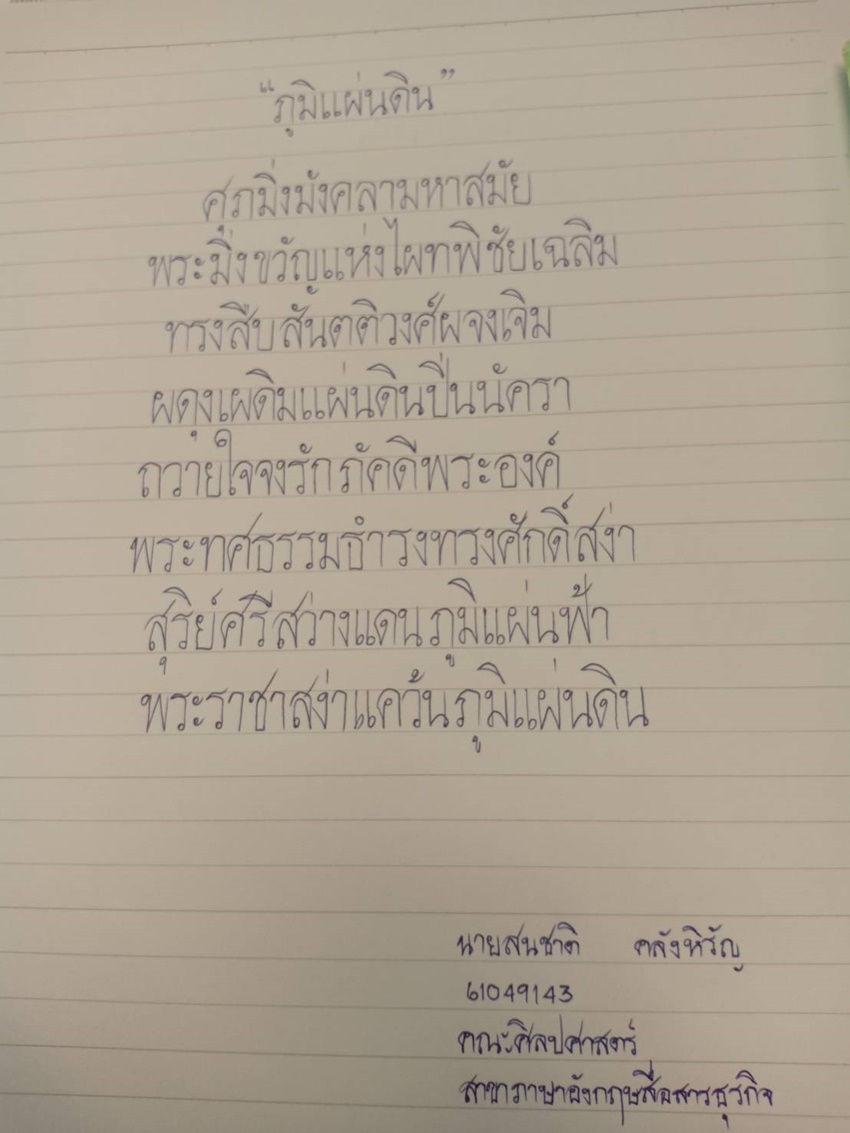 "ภูมิแผ่นดิน"
ศุภมิ่งมังคลามหาสมัย
พระมิ่งขวัญแห่งไผทพิชัยเฉลิม
ทรงสืบสันตติวงศ์ผจงเจิม
ผดุงเผดิมแผ่นดินปิ่นนัครา
ถวายใจจงรักภัคดีพระองค์
พระทศธรรมธำรงทรงศักดิ์สง่า
สุริย์ศรีสว่างแดนภูมิแผ่นฟ้า
พระราชาสง่าแคว้นภูมิแผ่นดิน
นายสนชาติ คลังหิรัญ
61049143
คณะศิลปศาสตร์
สาขาภาษาอังกฤษสื่อสารธุรกิจ